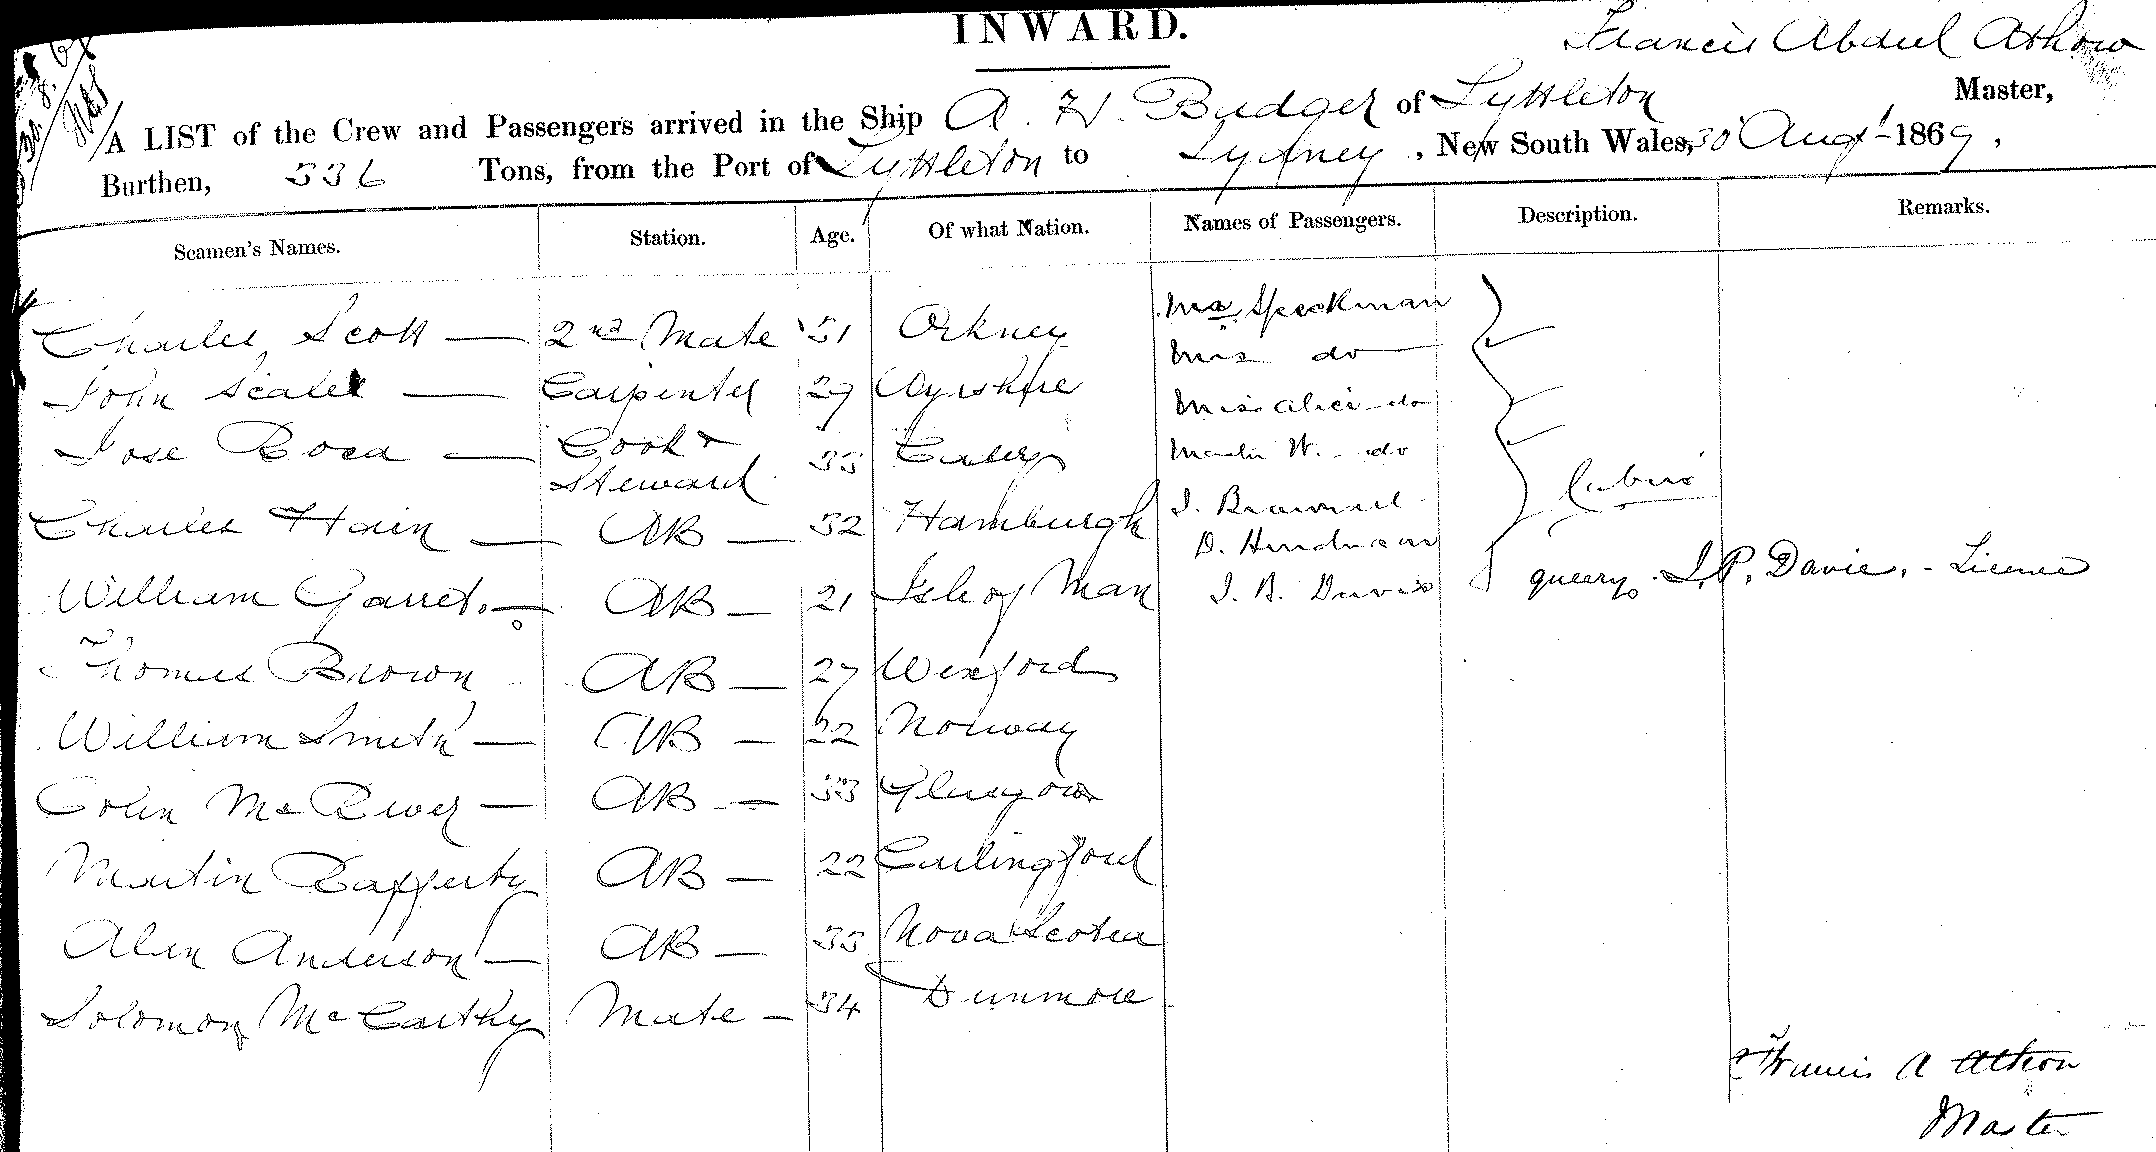 INWARD.
Francis Abdul Athow
A LIST of the Crew and Passengers arrived in the Ship A. H. Badger of Lyttleton Master,
Burthen, 336 Tons, from the Port of Lyttleton to Sydney, New South Wales, 30 Augt 1869,
Seamen's Names. Station. Age. Of what Nation. Names of Passengers. Description. Remarks.
Charles Scott — 2nd Mate 31 Orkney Mr. Speckman
Mrs do
John Scales — Carpenter 29 Ayrshire Miss Alice do
Jose Roca — Cook & 35 Master W. do
Steward Cabin
Charles Hain — AB — 32 Hamburgh J.
D.
William Garret. — AB — 21 Isle of Man J. B. Davis query J. P. Davie. - Licence
Thomas Brown AB — 27 Wexford
William Smith — AB — 22 Norway
Colin Mc Iver — AB — 33 Glasgow
Martin Rafferty AB — 22 Carlingford
Alan Anderson — AB — 35 Nova Scotia
Solomon McCarthy Mate — 34 Dunmore
Francis A Athow
Master